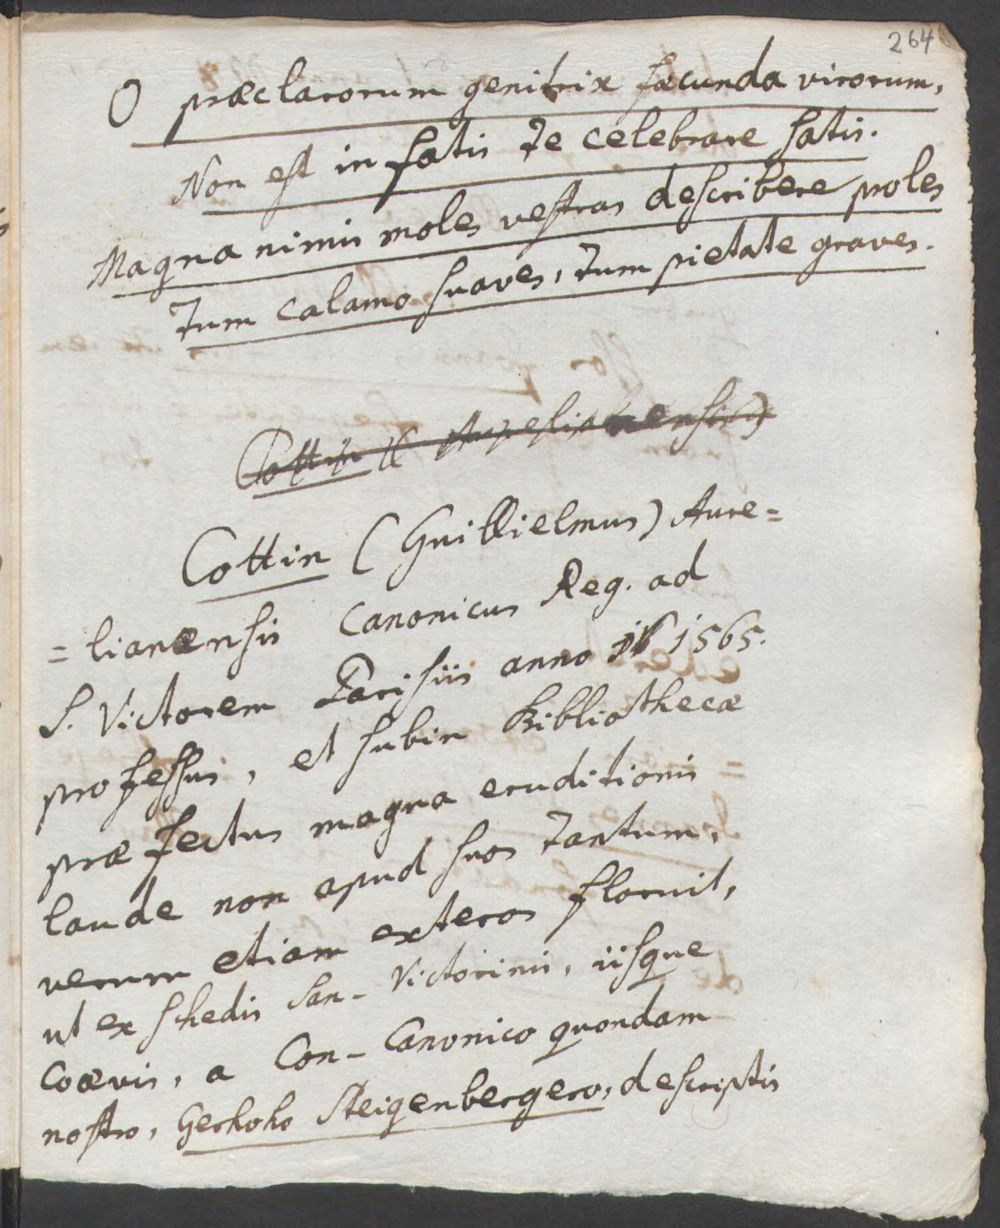 264
O præclarorum genitrix fæcunda virorum,
Non est in fatis te celebrare satis.
Magna nimis moles vestras describere proles
Tum calamo suaves, tum pietate graves.
Cottin (Guillielmus) Aure=
=lianensis Canonicus Reg. ad
S. Victorem Parisiis anno 1565.
professus, et subin Bibliothecæ
præfectus magna eruditionis
laude non apud suos tantum,
verum etiam exteros floruit,
ut ex schedis San-Victorinis, iisque
coævis, a Con-Canonico quondam
nostro, Gerhoho Steigenbergero, descriptis